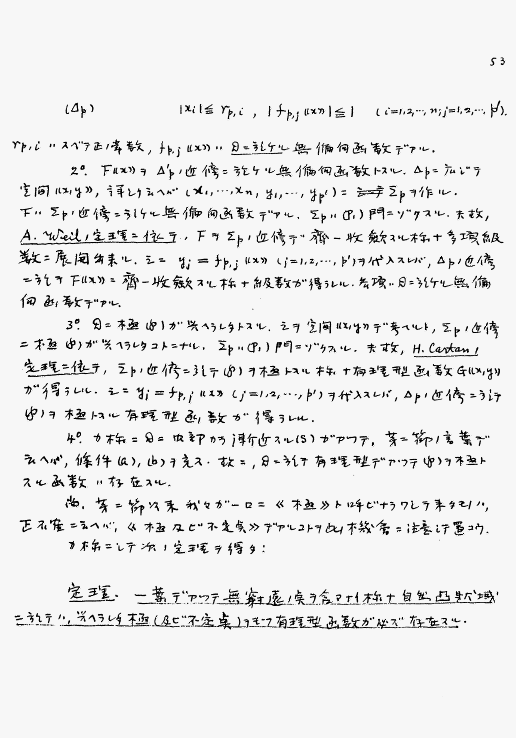 53
(Δp) |xi| ≦ rp,i , |fp,j((x))| ≦ 1 (i=1,2,…,n; j=1,2,…,p′).
rp,i ハスベテ正ノ常数, fp,j((x)) ハ 𝔇ニ於ケル無偏何函数デアル.
2°. F((x)) ヲ Δp′ノ近傍ニ於ケル無偏何函数トスル. Δp ニ応ジテ
空間((x,y)), 詳シク云ヘバ (x1,…,xn, y1,…, yp′) ニ Σp ヲ作ル.
F ハ Σpノ近傍ニ於ケル無偏何函数デアル. Σp ハ (P1) 門ニゾクスル. 夫故,
A. Weilノ定理ニ依テ, F ヲ Σpノ近傍デ齊一收斂スル様ナ多項級
数ニ展開出来ル. 之ニ yj = fp,j((x)) (j=1,2,…,p′) ヲ代入スレバ, Δpノ近傍
ニ於テ F((x)) ニ齊一收斂スル様ナ級数ガ得ラレル. 各項ハ 𝔇ニ於ケル無偏
何函数デアル.
3°. 𝔇ニ極(℘)ガ興ヘラレタトスル. 之ヲ空間((x,y))デ考ヘルト, Σpノ近傍
ニ極(℘)ガ興ヘラレタコトニナル. Σp ハ (P1) 門ニゾクスル. 夫故, H. Cartanノ
定理ニ依テ, Σpノ近傍ニ於テ(℘)ヲ極トスル様ナ有理型函数 G((x,y))
ガ得ラレル. 之ニ yj = fp,j((x)) (j=1,2,…,p′) ヲ代入スレバ, Δpノ近傍ニ於テ
(℘)ヲ極トスル有理型函数ガ得ラレル.
4°. カ様ニ 𝔇ニ内部カラ漸近スル(S)ガアッテ, 第一節ノ言葉デ
云ヘバ, 條件(a), (b)ヲ充ス. 故ニ, 𝔇ニ於テ有理型デアッテ(℘)ヲ極ト
スル函数ハ存在スル.
尚, 第一節以来我々ガ一口ニ《極》ト呼ビナラワシテ来タモノハ,
正確ニ云ヘバ, 《極及ビ不定点》デアルコトヲ此機會ニ注意シテ置コウ.
カ様ニシテ次ノ定理ヲ得タ:
定理. 一葉デアッテ無窮遠点ヲ含マナイ様ナ自然凸状域
ニ於テハ, 興ヘラレタ極(及ビ不定点)ヲモツ有理型函数ガ必ズ存在スル.